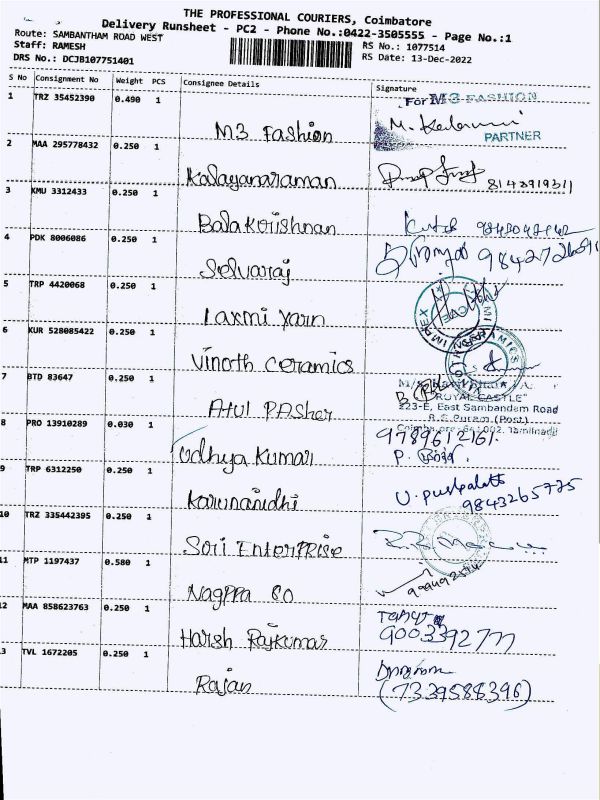 THE PROFESSIONAL COURIERS, Coimbatore
Delivery Runsheet - PC2 - Phone No.:0422-3505555 - Page No.:1
Route: SAMBANTHAM ROAD WEST
Staff: RAMESH
DRS No.: DCJB107751401
RS No.: 1077514
RS Date: 13-Dec-2022
S No Consignment No Weight PCS Consignee Details Signature
1 TRZ 35452390 0.490 1
For M3 FASHION
M3 Fashion
PARTNER
2 MAA 295778432 0.250 1
Kalayanaraman
8143919311
3 KMU 3312433 0.250 1
Balakorishnan
4 PDK 8006086 0.250 1
Selvaraj
5 TRP 4420068 0.250 1
Laxmi Yarn
6 KUR 528085422 0.250 1
Vinoth Ceramics
7 BTD 83647 0.250 1
"ROYAL CASTLE"
Atul PAsher
223-E, East Sambandam Road
R.S.Puram (Post)
8 PRO 13910289 0.030 1
Coimbatore-641 002. Tamilnadu
9789612161.
Udhya Kumar
9 TRP 6312250 0.250 1
Karunanidhi
9843265775
10 TRZ 335442395 0.250 1
Sori EnterPRise
11 MTP 1197437 0.580 1
Nagppa CO
12 MAA 858623763 0.250 1
Harsh Rajkumar
13 TVL 1672205 0.250 1
Rajan
(7339588396)